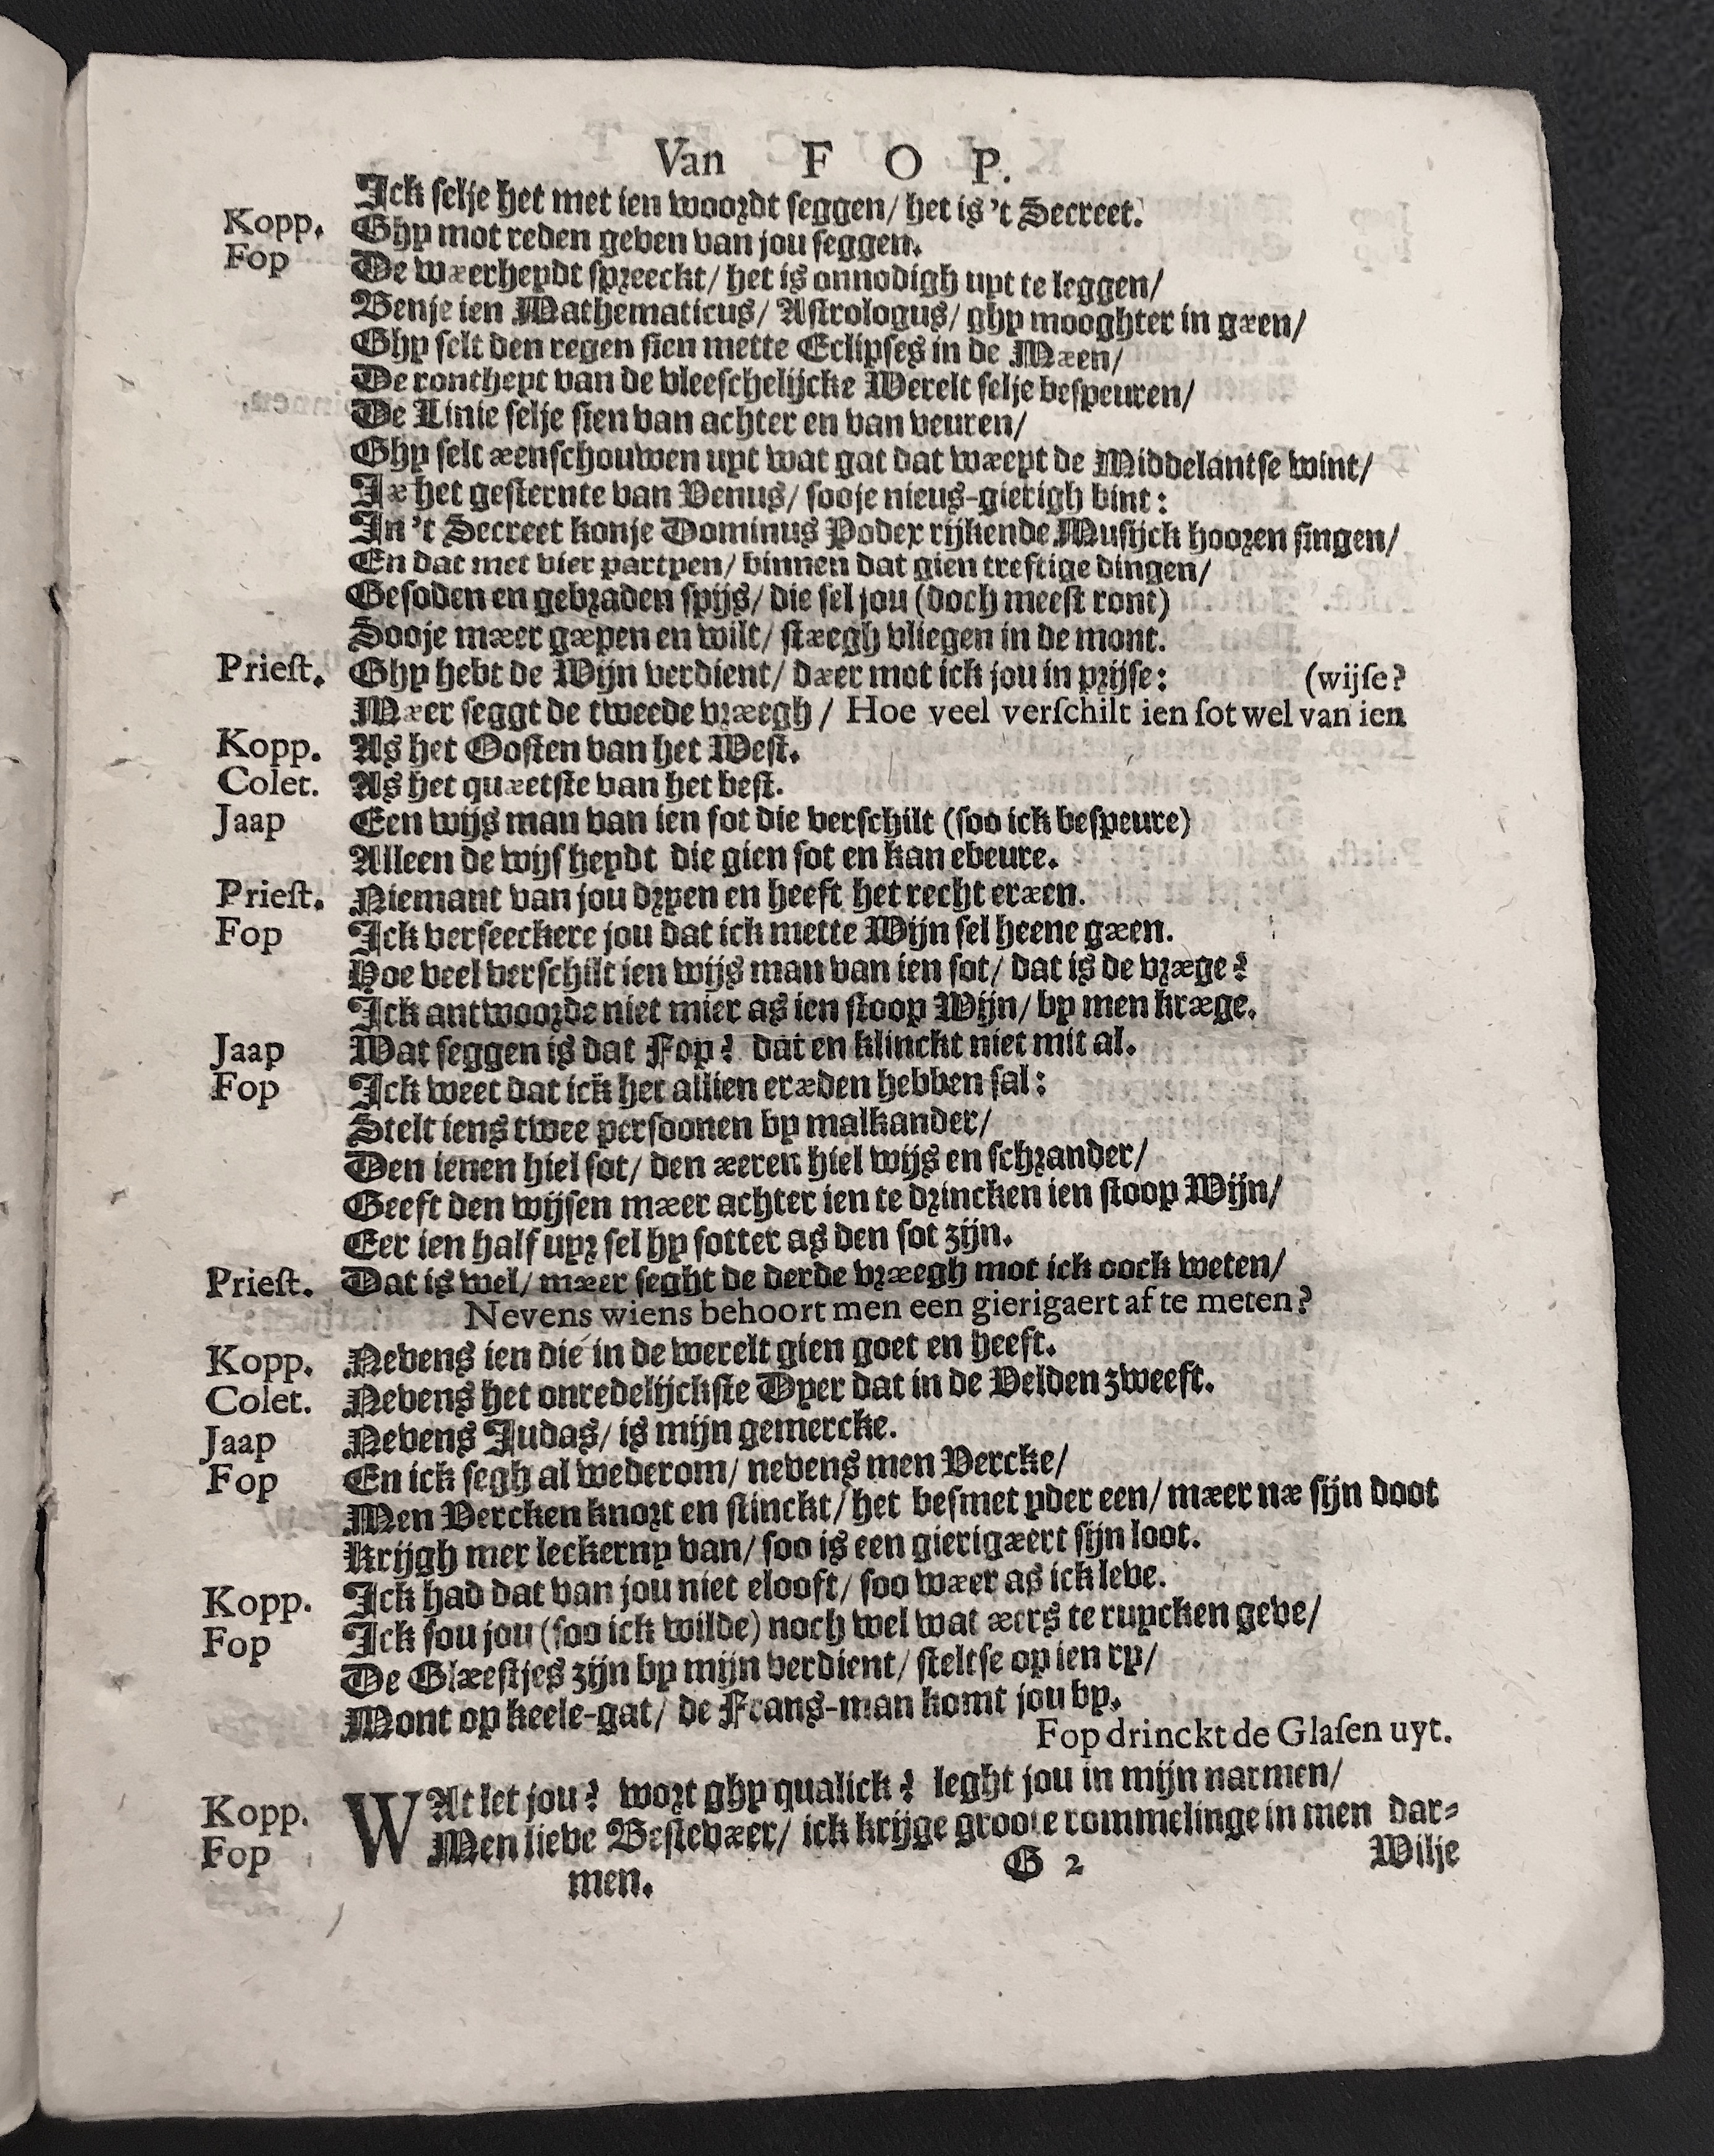 Van F O P.
Ick selje het met ien woordt seggen/ het is 't Secreet.
Kopp. Ghy mot reden geven van jou seggen.
Fop De wæerheydt spreeckt/ het is onnodigh uyt te leggen/
Benje ien Mathematicus/ Astrologus/ ghy mooghter in gæen/
Ghy selt den regen sien mette Eclipses in de Mæen/
De rontheyt van de vleeschelijcke Werelt selje bespeuren/
De Linie selje sien van achter en van veuren/
Ghy selt æenschouwen uyt wat gat dat wæeyt de Middelantse wint/
Jæ het gesternte van Venus/ sooje nieus-gierigh bint:
In 't Secreet konje Dominus Podex rijkende Musijck hooren singen/
En dat met vier partyen/ binnen dat gien treftige dingen/
Gesoden en gebraden spijs/ die sel jou (doch meest ront)
Sooje mæer gæpen en wilt/ stæegh vliegen in de mont.
Priest. Ghy hebt de Wijn verdient/ dæer mot ick jou in prijse: (wijse?
Mæer seggt de tweede vræegh/ Hoe veel verschilt ien sot wel van ien
Kopp. As het Oosten van het West.
Colet. As het quæetste van het best.
Jaap Een wijs man van ien sot die verschilt (soo ick bespeure)
Alleen de wijsheydt die gien sot en kan ebeure.
Priest. Niemant van jou dryen en heeft het recht eræen.
Fop Ick verseeckere jou dat ick mette Wijn sel heene gæen.
Hoe veel verschilt ien wijs man van ien sot/ dat is de vræge?
Ick antwoorde niet mier as ien stoop Wijn/ by men kræge.
Jaap Wat seggen is dat Fop? dat en klinckt niet mit al.
Fop Ick weet dat ick het allien eræden hebben sal:
Stelt iens twee persoonen by malkander/
Den ienen hiel sot/ den æeren hiel wijs en schrander/
Geeft den wijsen mæer achter ien te drincken ien stoop Wijn/
Eer ien half uyr sel hy sotter as den sot zijn.
Priest. Dat is wel/ mæer seght de derde vræegh mot ick oock weten/
Nevens wiens behoort men een gierigaert af te meten?
Kopp. Nevens ien die in de werelt gien goet en heeft.
Colet. Nevens het onredelijckste Dyer dat in de Velden zweeft.
Jaap Nevens Judas/ is mijn gemercke.
Fop En ick segh al wederom/ nevens men Vercke/
Men Vercken knort en stinckt/ het besmet yder een/ mæer næ sijn doot
Krijgh mer leckerny van/ soo is een gierigæert sijn loot.
Kopp. Ick had dat van jou niet elooft/ soo wæer as ick leve.
Fop Ick sou jou (soo ick wilde) noch wel wat æers te ruycken geve/
De Glæestjes zijn by mijn verdient/ steltse op ien ry/
Mont op keele-gat/ de Frans-man komt jou by.
Fop drinckt de Glasen uyt.
Kopp. WAt let jou? wort ghy qualick? leght jou in mijn narmen/
Fop Men lieve Bestevæer/ ick krijge groote rommelinge in men dar-
men. G 2 Wilje